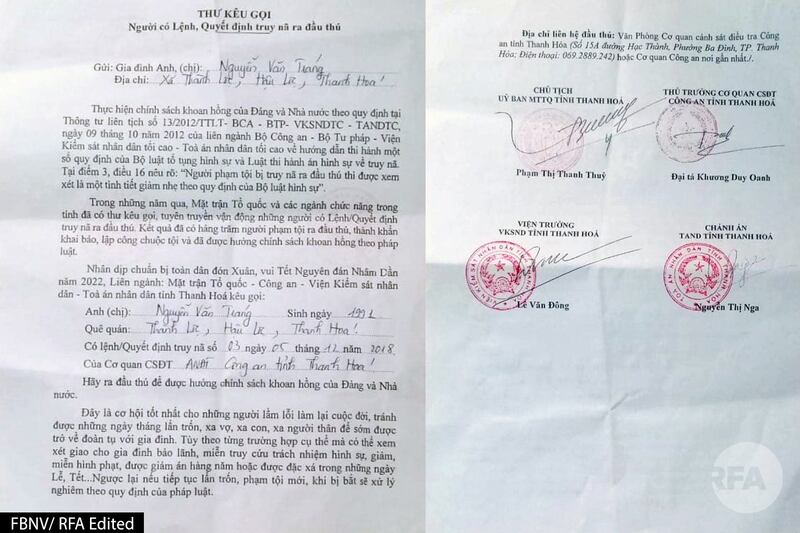 THƯ KÊU GỌI
Người có Lệnh, Quyết định truy nã ra đầu thú
Gửi: Gia đình Anh, (chị): Nguyễn Văn Tráng
Địa chỉ: Xã Thành Lộc, Hậu Lộc, Thanh Hoá!
Thực hiện chính sách khoan hồng của Đảng và Nhà nước theo quy định tại
Thông tư liên tịch số 13/2012/TTLT- BCA - BTP- VKSNDTC - TANDTC,
ngày 09 tháng 10 năm 2012 của liên ngành Bộ Công an - Bộ Tư pháp - Viện
Kiểm sát nhân dân tối cao - Toà án nhân dân tối cao về hướng dẫn thi hành một
số quy định của Bộ luật tố tụng hình sự và Luật thi hành án hình sự về truy nã.
Tại điểm 3, điều 16 nêu rõ: “Người phạm tội bị truy nã ra đầu thú thì được xem
xét là một tình tiết giảm nhẹ theo quy định của Bộ luật hình sự”.
Trong những năm qua, Mặt trận Tổ quốc và các ngành chức năng trong
tỉnh đã có thư kêu gọi, tuyên truyền vận động những người có Lệnh/Quyết định
truy nã ra đầu thú. Kết quả đã có hàng trăm người phạm tội ra đầu thú, thành khẩn
khai báo, lập công chuộc tội và đã được hưởng chính sách khoan hồng theo pháp
luật.
Nhân dịp chuẩn bị toàn dân đón Xuân, vui Tết Nguyên đán Nhâm Dần
năm 2022, Liên ngành: Mặt trận Tổ quốc - Công an - Viện Kiểm sát nhân
dân - Toà án nhân dân tỉnh Thanh Hoá kêu gọi:
Anh (chị): Nguyễn Văn Tráng Sinh ngày 1991
Quê quán: Thành Lộc, Hậu Lộc, Thanh Hoá!
Có lệnh/Quyết định truy nã số 03 ngày 05 tháng 12 năm 2018
Của Cơ quan CSĐT ANĐT Công an tỉnh Thanh Hoá!
Hãy ra đầu thú để được hưởng chính sách khoan hồng của Đảng và Nhà
nước.
Đây là cơ hội tốt nhất cho những người lầm lỗi làm lại cuộc đời, tránh
được những ngày tháng lẩn trốn, xa vợ, xa con, xa người thân để sớm được
trở về đoàn tụ với gia đình. Tùy theo từng trường hợp cụ thể mà có thể xem
xét giao cho gia đình bảo lãnh, miễn truy cứu trách nhiệm hình sự, giảm,
miễn hình phạt, được giảm án hàng năm hoặc được đặc xá trong những ngày
Lễ, Tết...Ngược lại nếu tiếp tục lẩn trốn, phạm tội mới, khi bị bắt sẽ xử lý
nghiêm theo quy định của pháp luật.
Địa chỉ liên hệ đầu thú: Văn Phòng Cơ quan cảnh sát điều tra Công
an tỉnh Thanh Hóa (Số 15A đường Hạc Thành, Phường Ba Đình, TP. Thanh
Hóa; Điện thoại: 069.2889.242) hoặc Cơ quan Công an nơi gần nhất./.
CHỦ TỊCH
UỶ BAN MTTQ TỈNH THANH HOÁ
Phạm Thị Thanh Thuỷ
THỦ TRƯỞNG CƠ QUAN CSĐT
CÔNG AN TỈNH THANH HOÁ
Đại tá Khương Duy Oanh
VIỆN TRƯỞNG
VKSND TỈNH THANH HOÁ
VIỆN KIỂM SÁT NHÂN DÂN TỈNH
Lê Văn Đông
CHÁNH ÁN
TAND TỈNH THANH HOÁ
TOÀ ÁN NHÂN DÂN TỈNH THANH HOÁ
Nguyễn Thị Nga
RFA
FBNV/ RFA Edited